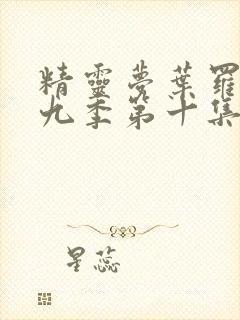 精靈夢葉羅
九季第十集
星蕊